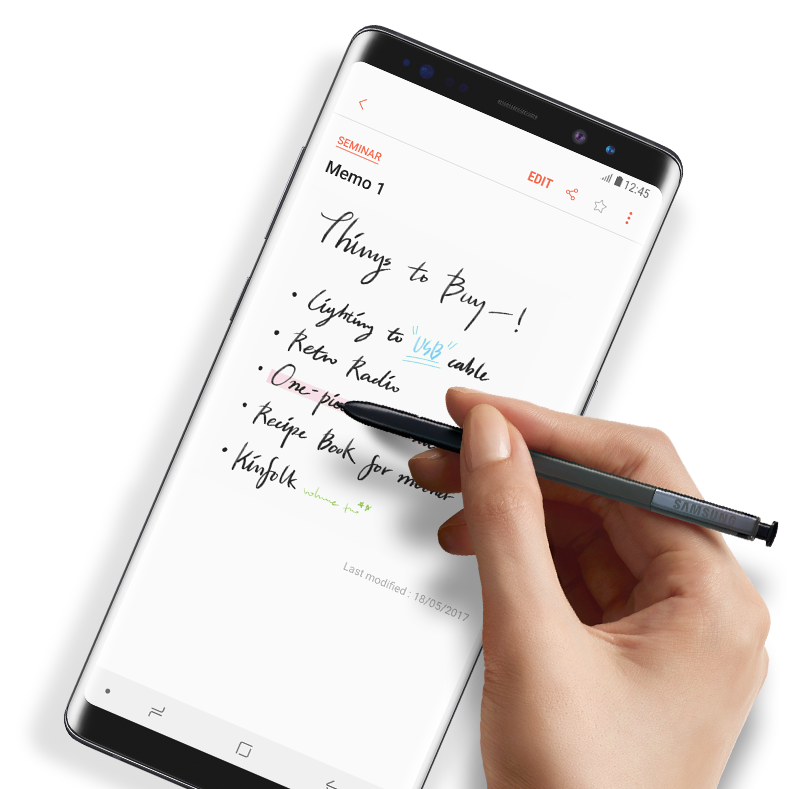 12:45
SEMINAR
EDIT
Memo 1
Things to Buy—!
• Lighting to "USB" cable
• Retro Radio
• One-pie
• Recipe Book for mother
• Kinfolk volume
Last modified : 18/05/2017
SAMSUNG